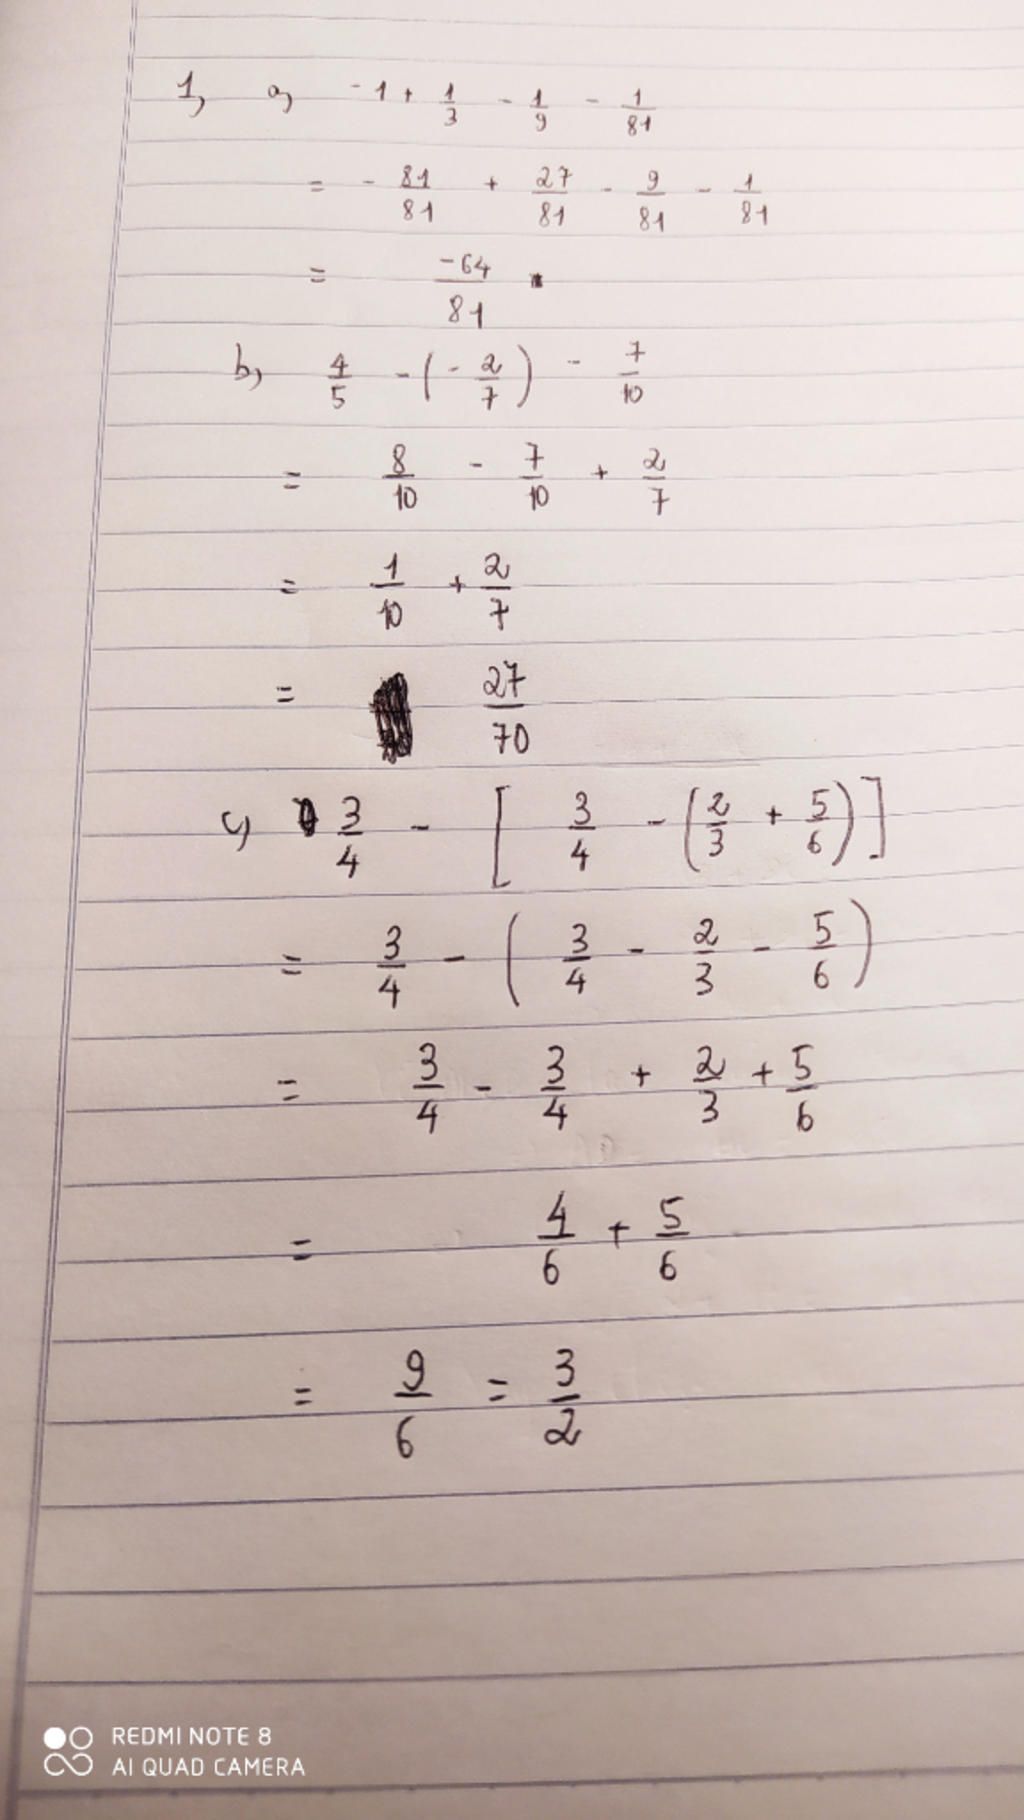 1, a, -1 + 1/3 - 1/9 - 1/81
= - 81/81 + 27/81 - 9/81 - 1/81
= -64/81
b, 4/5 - (- 2/7) - 7/10
= 8/10 - 7/10 + 2/7
= 1/10 + 2/7
= 27/70
c, 3/4 - [ 3/4 - (2/3 + 5/6)]
= 3/4 - ( 3/4 - 2/3 - 5/6)
= 3/4 - 3/4 + 2/3 + 5/6
= 4/6 + 5/6
= 9/6 = 3/2
REDMI NOTE 8
AI QUAD CAMERA